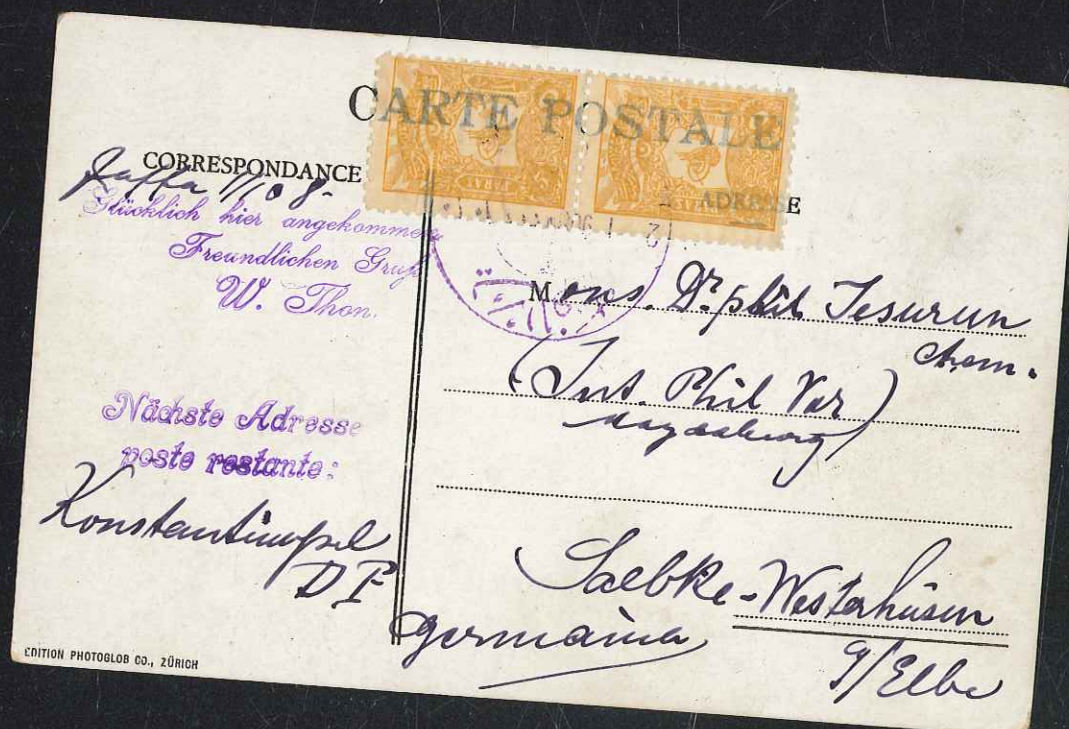 CARTE POSTALE
CORRESPONDANCE
ADRESSE
Jaffa 1/10 8-
Glücklich hier angekommen
Freundlichen Gruß
W. Thon.
Nächste Adresse
poste restante:
Konstantinopel
D P
M ons. Dr. phil Jesurun
chem.
(Int. Phil Ver)
Magdeburg
Salbke-Westerhüsen
a/Elbe
Germania
EDITION PHOTOGLOB CO., ZÜRICH